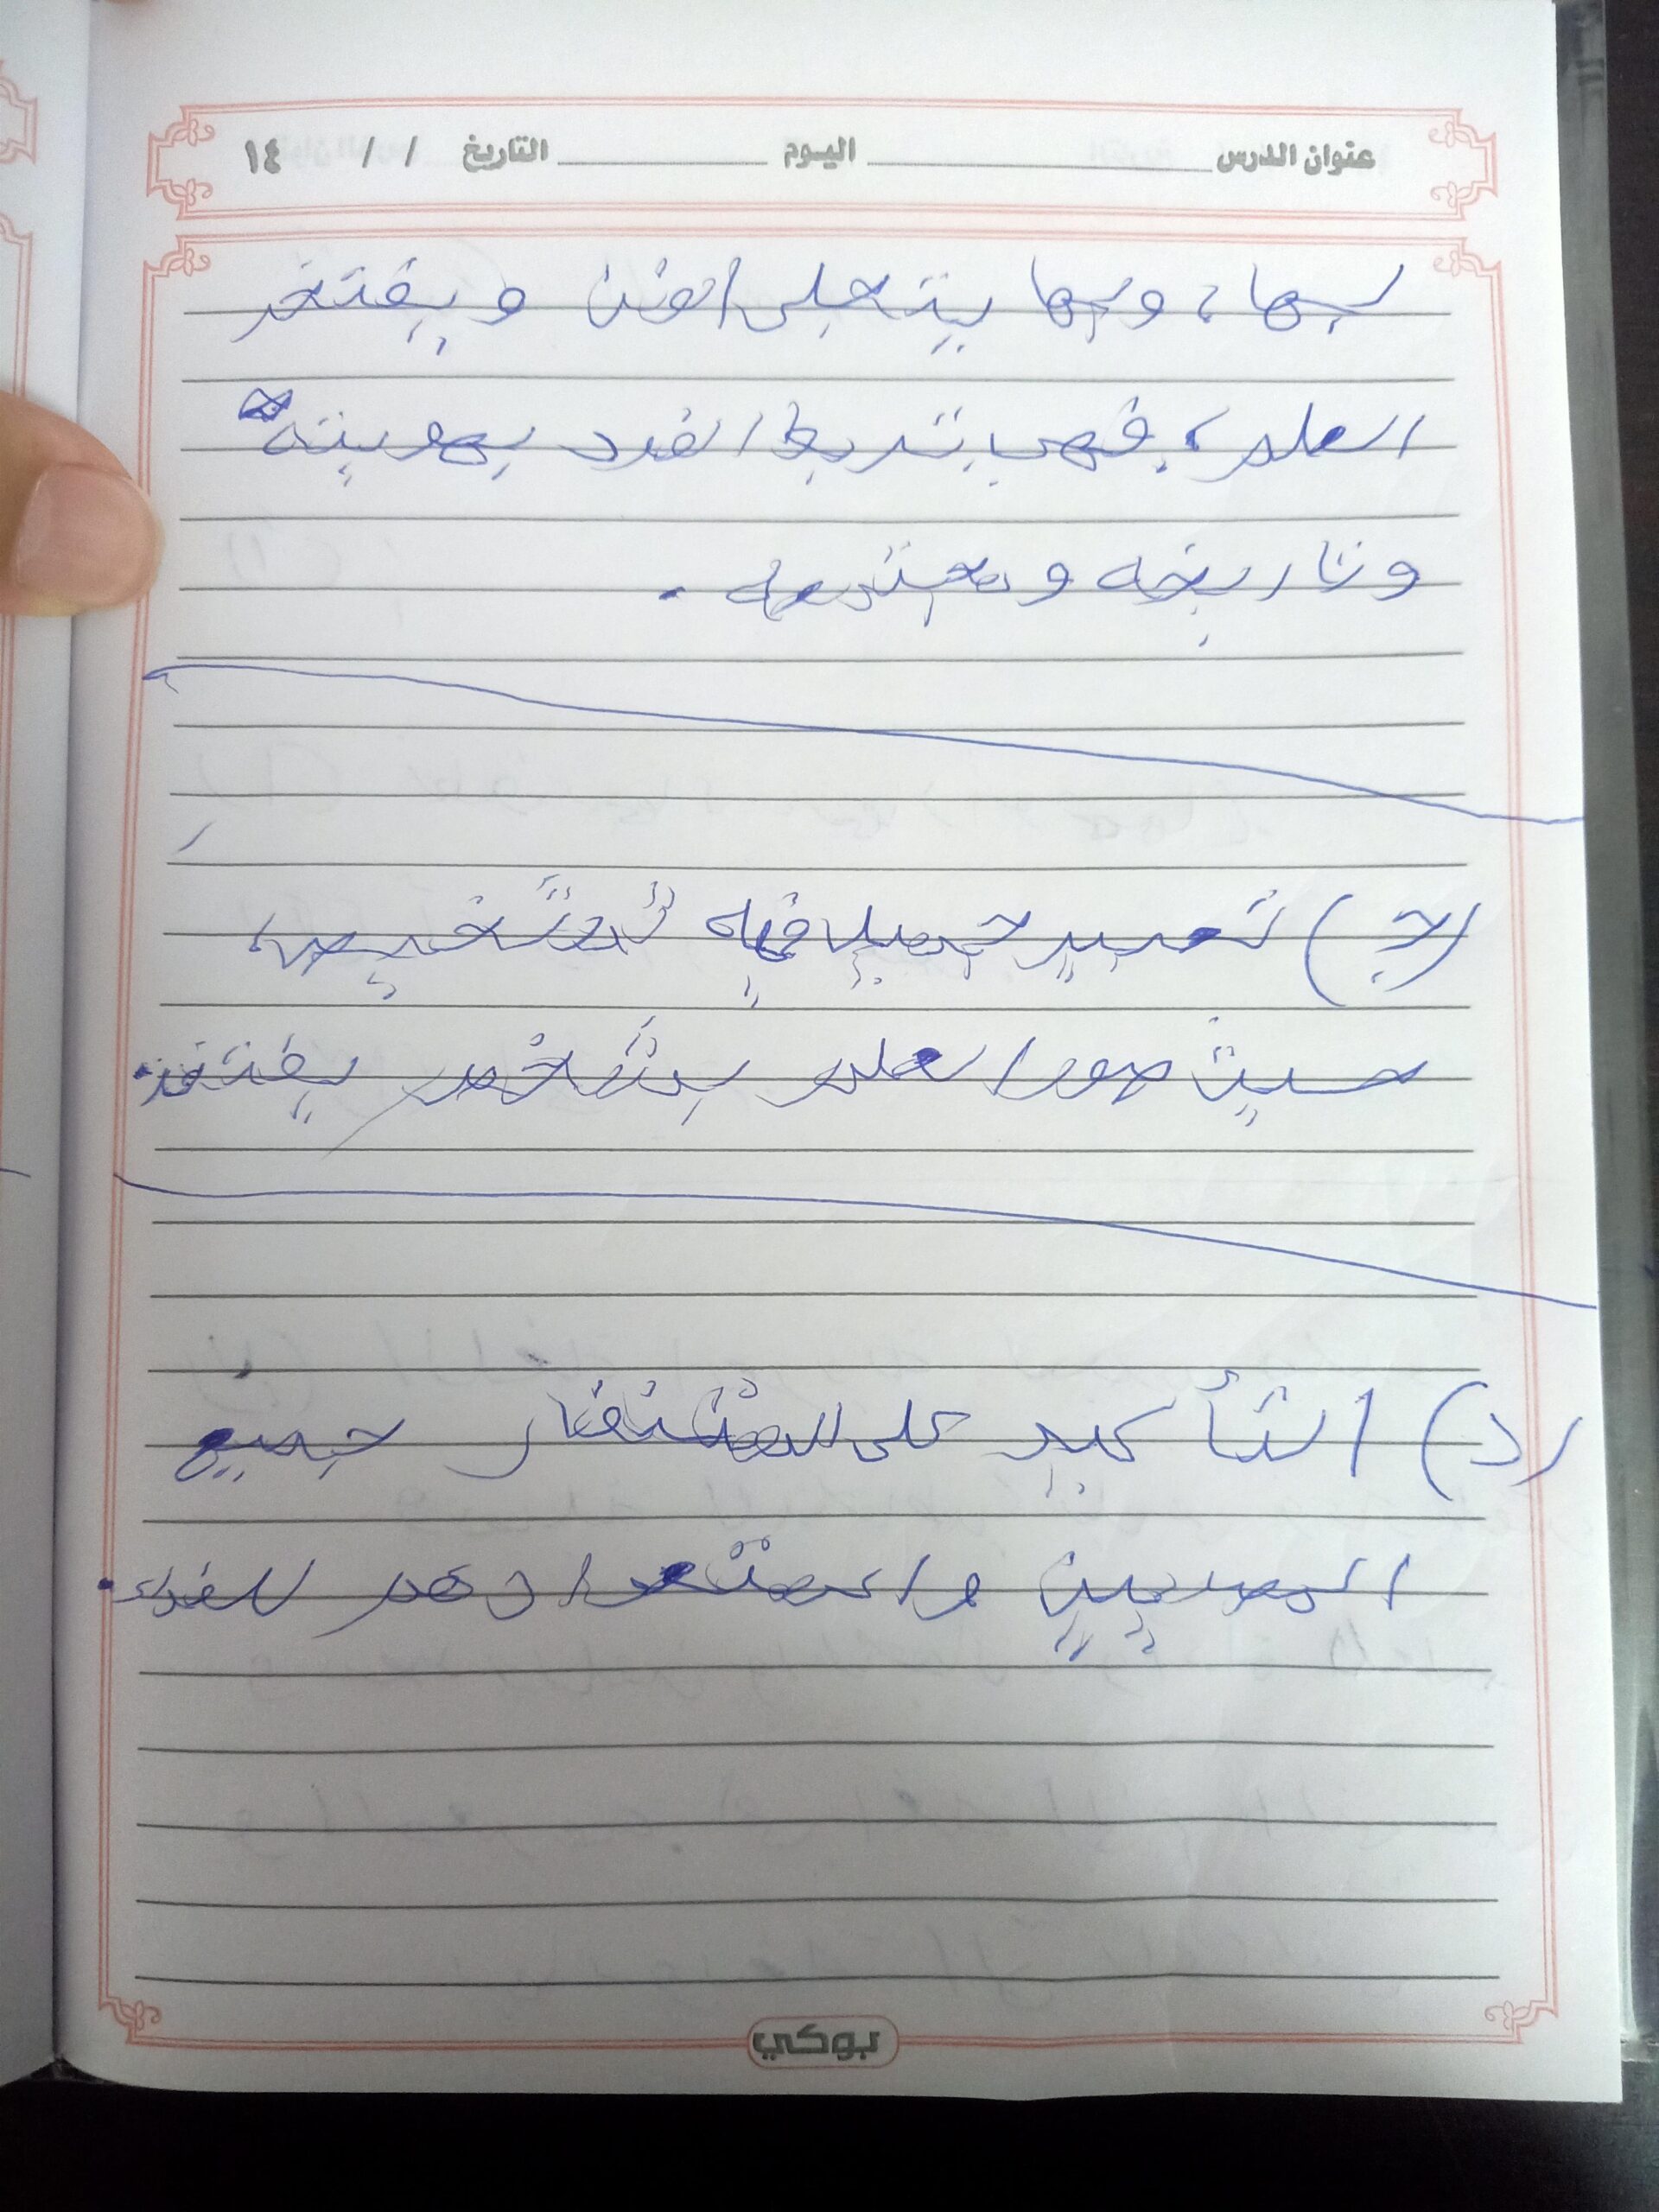 عنوان الدرس اليوم التاريخ / / ١٤
بها، وبها يتجلى الفن ويفتخر
العلم، فهي تربط الفرد بهويته
وتاريخه ومجتمعه.
(ج) تعبير جميل فيه تشخيص،
حيث صور العلم بشخص يفتخر.
(د) التأكيد على استنفار جميع
المصريين واستعدادهم للفداء.
بوكي